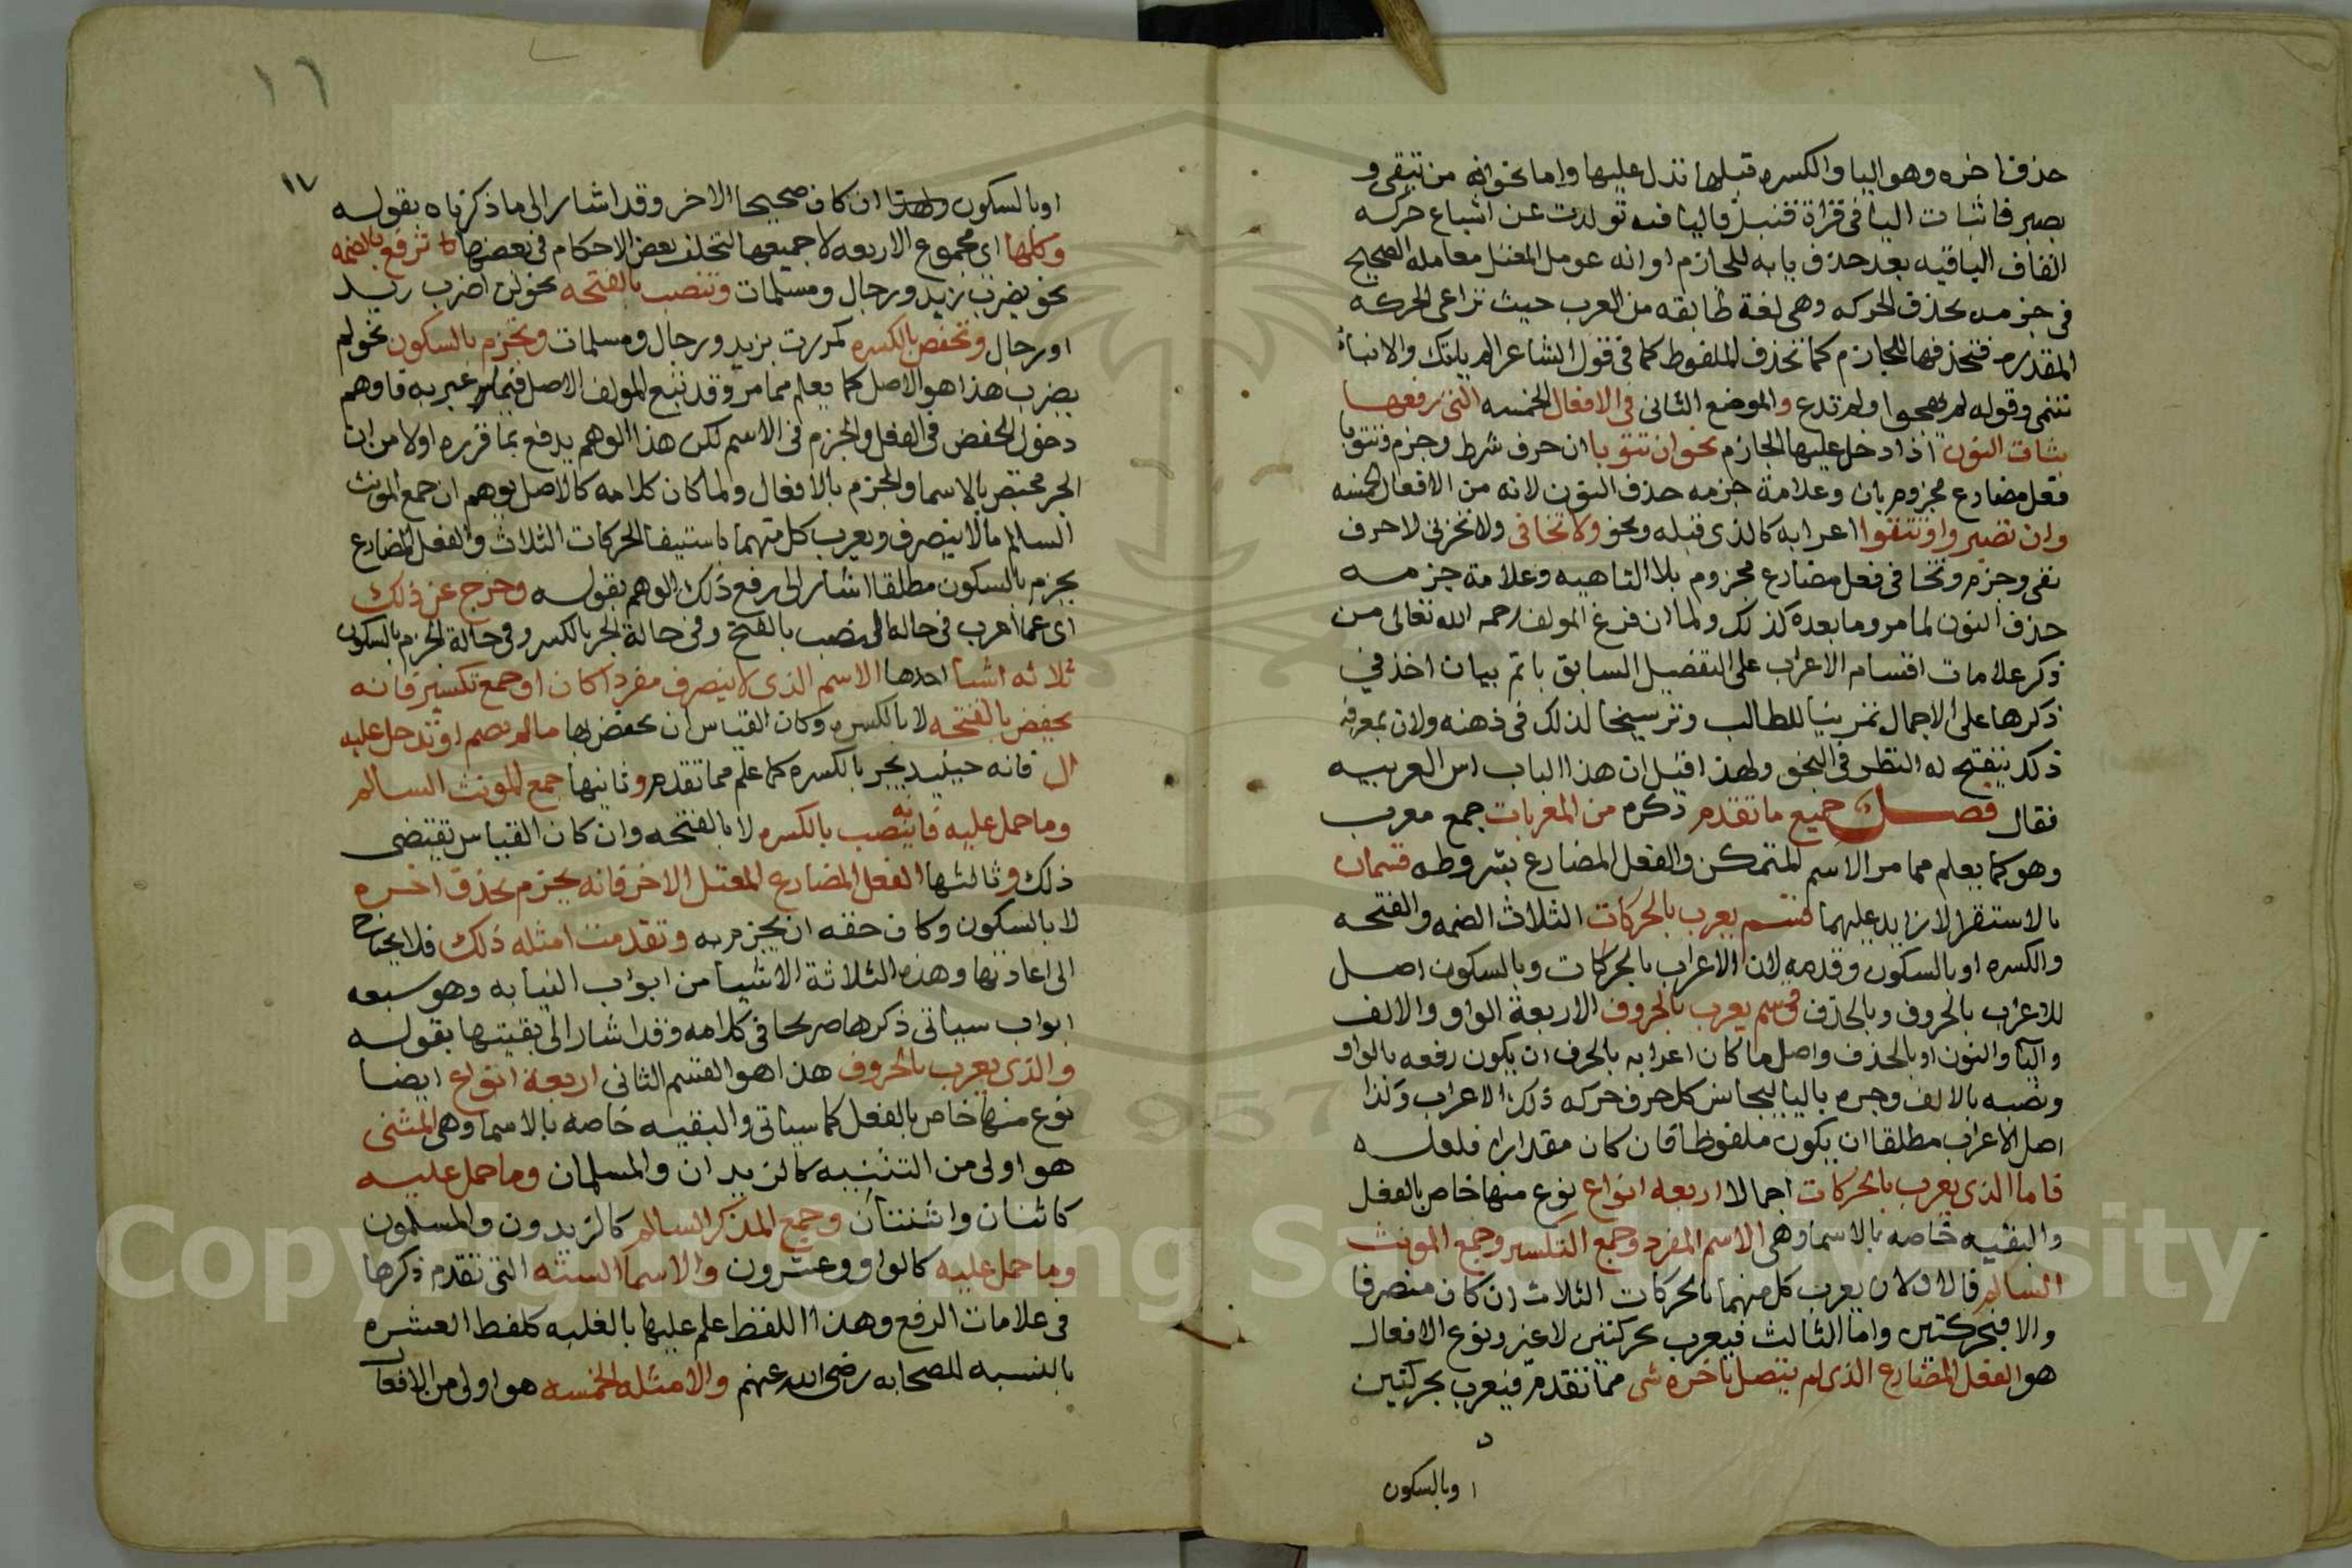 حذف اخره وهو اليا والكسره قبلها تدل عليها واما نحو انه من يتقى و
يصبر فاثبات اليا فى قراة قنبل فاليا فيه تولدت عن اشباع حركه
القاف الباقيه بعد حذف يايه للجازم او انه عومل المعتل معامله الصحيح
فى جزمه بحذف الحركه وهى لغة طايفه من العرب حيث تراعى الحركه
المقدره فتحذفها للجازم كما تحذف الملفوظ كما فى قول الشاعر الم ياتيك والانباء
تنمى وقوله لم تهجوا ولم تدع والموضع الثانى فى الافعال الخمسه التى رفعها
بثبات النون اذا دخل عليها الجازم نحو ان تتوبا ان حرف شرط وجزم وتتوبا
فعل مضارع مجزوم بان وعلامة جزمه حذف النون لانه من الافعال الخمسه
وان تصبروا وتتقوا اعرابه كالذى قبله ونحو ولا تخافى ولا تحزنى لا حرف
نهى وجزم وتخافى فعل مضارع مجزوم بلا الناهيه وعلامة جزمه
حذف النون لما مر وما بعده كذلك ولما ان فرغ المولف رحمه الله تعالى من
ذكر علامات اقسام الاعراب على التفصيل السابق باتم بيان اخذ فى
ذكرها على الاجمال تمرينا للطالب وترسيخا لذلك فى ذهنه ولان بمعرفه
ذلك ينفتح له النظر فى النحو ولهذا قيل ان هذا الباب اس العربيه
فقال فصل جميع ما تقدم ذكره من المعربات جمع معرب
وهو كما يعلم مما مر الاسم المتمكن والفعل المضارع بشروطه قسمان
بالاستقرا لا زايد عليهما قسم يعرب بالحركات الثلاث الضمه والفتحه
والكسره او بالسكون وقدمه لان الاعراب بالحركات وبالسكون اصل
للاعراب بالحروف وبالحذف وقسم يعرب بالحروف الاربعة الواو والالف
واليا والنون او بالحذف واصل ما كان اعرابه بالحرف ان يكون رفعه بالواو
ونصبه بالالف وجره باليا ليجانس كل حرف حركه ذلك الاعراب وكذا
اصل الاعراب مطلقا ان يكون ملفوظا فان كان مقدرا فلعله
فاما الذى يعرب بالحركات اجمالا اربعه انواع نوع منها خاص بالفعل
والبقيه خاصه بالاسما وهى الاسم المفرد وجمع التكسير وجمع المونث
السالم فالاولان يعرب كل منهما بالحركات الثلاث ان كان منصرفا
والا فبحركتين واما الثالث فيعرب بحركتين لا غير ونوع الافعال
هو الفعل المضارع الذى لم يتصل باخره شى مما تقدم فيعرب بحركتين
او بالسكون
١٦
١٧
او بالسكون ان كان صحيح الاخر وقد اشار الى ما ذكرناه بقوله
وكلها اى مجموع الاربعه لا جميعها لتخلف بعض الاحكام فى بعضها ترفع بالضمه
نحو يضرب زيد ورجال ومسلمات وتنصب بالفتحه نحو لن اضرب زيد
او رجال وتخفض بالكسره كمررت بزيد ورجال ومسلمات وتجزم بالسكون نحو لم
يضرب هذا هو الاصل كما يعلم مما مر وقد تبع المولف الاصل فيما عبر به فاوهم
دخول الخفض فى الفعل والجزم فى الاسم لكن هذا الوهم يدفع بما قرره اولا من ان
الجر مختص بالاسما والجزم بالافعال ولما كان كلامه كالاصل يوهم ان جمع المونث
السالم ما لا ينصرف ويعرب كل منهما باستيفا الحركات الثلاث والفعل المضارع
يجزم بالسكون مطلقا اشار الى رفع ذلك الوهم بقوله وخرج عن ذلك
اى عما اعرب فى حاله النصب بالفتح وفى حالة الجر بالكسر وفى حالة الجزم بالسكون
ثلاثه اشيا احدها الاسم الذى لا ينصرف مفردا كان او جمع تكسير فانه
يخفض بالفتحه لا بالكسره وكان القياس ان يخفض بها ما لم يضم او تدخل عليه
ال فانه حينيذ يجر بالكسره كما علم مما تقدم وثانيها جمع المونث السالم
وما حمل عليه فانه ينصب بالكسره لا بالفتحه وان كان القياس تقتضى
ذلك وثالثها الفعل المضارع المعتل الاخر فانه يجزم بحذف اخره
لا بالسكون وكان حقه ان يجزم به وتقدمت امثله ذلك فلا يحتاج
الى اعادتها وهذه الثلاثة الاشيا من ابواب النيابه وهو سبعه
ابواب سياتى ذكرها صريحا فى كلامه وقد اشار الى بقيتها بقوله
والذى يعرب بالحروف هذا هو القسم الثانى اربعة انواع ايضا
نوع منها خاص بالفعل كما سياتى والبقيه خاصه بالاسما وهى المثنى
هو اولى من التثنيه كالزيدان والمسلمان وما حمل عليه
كاثنان واثنتان وجمع المذكر السالم كالزيدون والمسلمون
وما حمل عليه كالواو وعشرون والاسما السته التى تقدم ذكرها
فى علامات الرفع وهذا اللفظ علم عليها بالغلبه كلفظ العشره
بالنسبه للصحابه رضى الله عنهم والامثله الخمسه هو اولى من الافعال
Copyright © King Saud University
1957